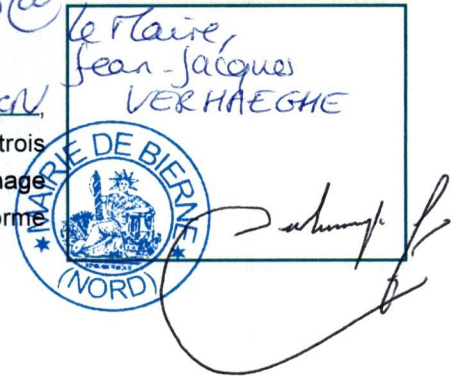 Le Maire,
Jean-Jacques
VERHAEGHE
trois
nage
orme
MAIRIE DE BIERNE
(NORD)